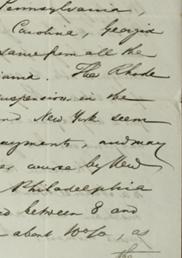 Pennsylvania,
Carolina, Georgia
same from all the
The Rhode
suspension in the
and New York seem
payments, and may
course by New
Philadelphia
between 8 and
about 10%, as
the